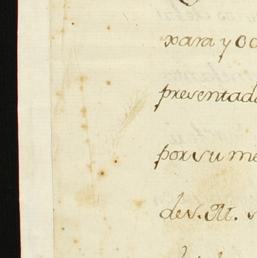 para y o
presentad
por su me
de v. M.